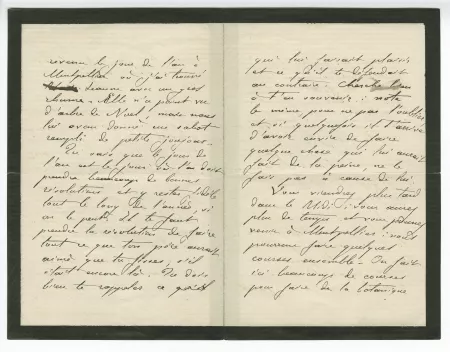 revenu le jour de l'an à
Montpellier où j'ai trouvé
Jeanne avec un gros
rhume. Elle n'a point vu
d'arbre de Noël mais nous
lui avons donné un sabot
rempli de petits joujoux.
Tu sais que le jour de
l'an est le jour où l'on doit
prendre beaucoup de bonnes
résolutions et y rester fidèle
tout le long de l'année, si
on le peut. Il te faut
prendre la résolution de faire
tout ce que ton père aurait
aimé que tu fasses, s'il
était encore là. Tu dois
bien te rappeler ce qu'il
qui lui faisait plaisir
et ce qu'il te défendait
au contraire. Cherche bien
à t'en souvenir : note
le même pour ne pas l'oublier
et si quelquefois il t'arrive
d'avoir envie de faire
quelque chose qui lui aurait
fait de la peine ne le
fais pas à cause de lui
Vous viendrez plus tard
dans le Midi : vous aurez
plus de temps et vous pourrez
venir à Montpellier : nous
pourrons faire quelques
courses ensemble. On fait
ici beaucoup de courses
pour faire de la botanique